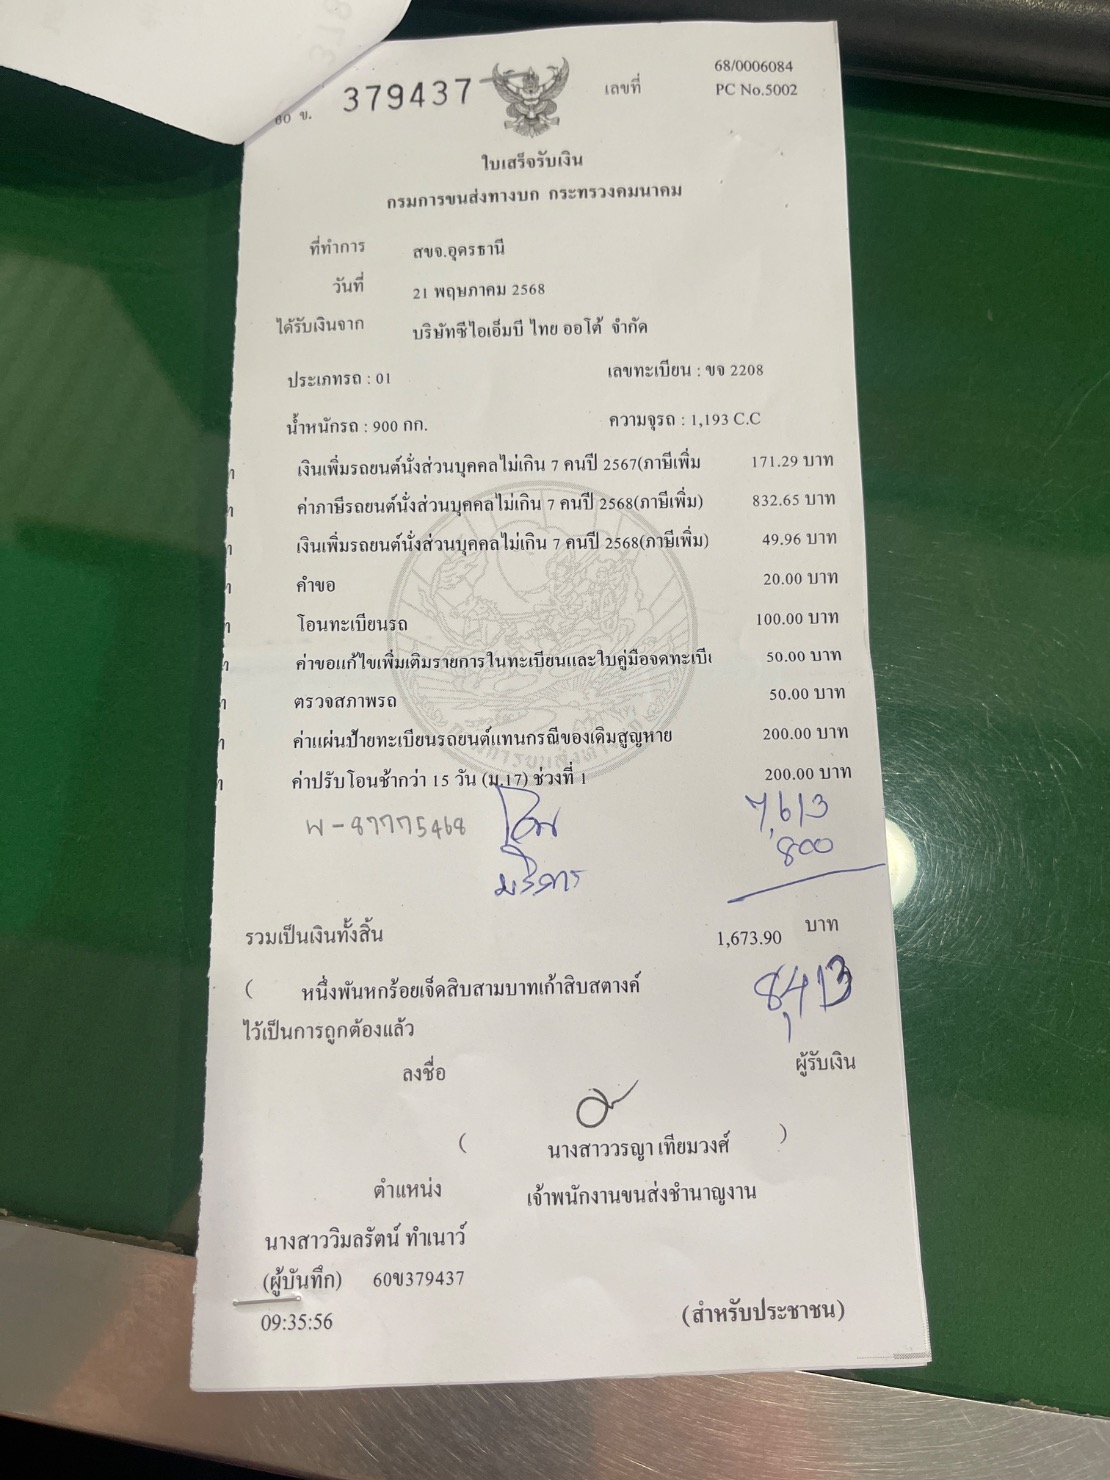 60 ข. 379437 เลขที่ 68/0006084
PC No.5002
ใบเสร็จรับเงิน
กรมการขนส่งทางบก กระทรวงคมนาคม
ที่ทำการ สขจ.อุดรธานี
วันที่ 21 พฤษภาคม 2568
ได้รับเงินจาก บริษัทซีไอเอ็มบี ไทย ออโต้ จำกัด
ประเภทรถ : 01 เลขทะเบียน : ขจ 2208
น้ำหนักรถ : 900 กก. ความจุรถ : 1,193 C.C
เงินเพิ่มรถยนต์นั่งส่วนบุคคลไม่เกิน 7 คนปี 2567(ภาษีเพิ่ม 171.29 บาท
ค่าภาษีรถยนต์นั่งส่วนบุคคลไม่เกิน 7 คนปี 2568(ภาษีเพิ่ม) 832.65 บาท
เงินเพิ่มรถยนต์นั่งส่วนบุคคลไม่เกิน 7 คนปี 2568(ภาษีเพิ่ม) 49.96 บาท
คำขอ 20.00 บาท
โอนทะเบียนรถ 100.00 บาท
ค่าขอแก้ไขเพิ่มเติมรายการในทะเบียนและใบคู่มือจดทะเบี 50.00 บาท
ตรวจสภาพรถ 50.00 บาท
ค่าแผ่นป้ายทะเบียนรถยนต์แทนกรณีของเดิมสูญหาย 200.00 บาท
ค่าปรับโอนช้ากว่า 15 วัน (ม.17) ช่วงที่ 1 200.00 บาท
7,613
800
บริการ
รวมเป็นเงินทั้งสิ้น 1,673.90 บาท
( หนึ่งพันหกร้อยเจ็ดสิบสามบาทเก้าสิบสตางค์
8,413
ไว้เป็นการถูกต้องแล้ว
ลงชื่อ ผู้รับเงิน
( นางสาววรญา เทียมวงศ์ )
ตำแหน่ง เจ้าพนักงานขนส่งชำนาญงาน
นางสาววิมลรัตน์ ทำเนาว์
(ผู้บันทึก) 60ข379437
09:35:56 (สำหรับประชาชน)